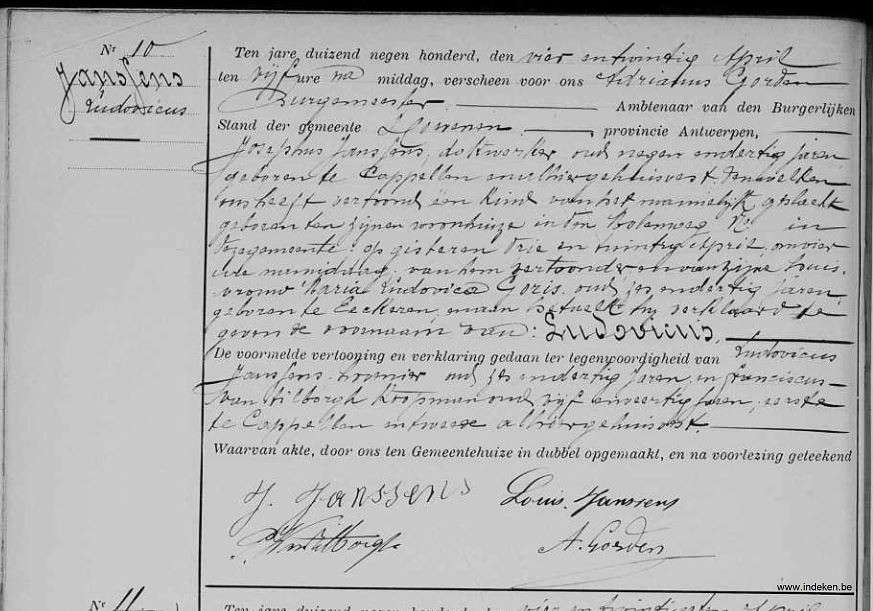 Nr 10
Janssens
Ludovicus
Ten jare duizend negen honderd, den vier en twintig April
ten vijf ure na middag, verscheen voor ons Adrianus Gorden
Burgemeester Ambtenaar van den Burgerlijken
Stand der gemeente provincie Antwerpen,
Josephus Janssens, dokwerker oud negen endertig jaren
geboren te Cappellen en alhier gehuisvest, denwelken
ons heeft vertoond een Kind van het mannelijk geslacht
geboren ten zijnen woonhuize in den Molenweg No in
deze gemeente op gisteren drie en twintig April, om vier
ure namiddag van hem vertooner en van zijne huis-
vrouw Maria Ludovica Goris oud zes endertig jaren
geboren te Eeckeren, en aan hetwelk hij verklaard te
geven de voornaam van: Ludovicus,
De voormelde vertooning en verklaring gedaan ter tegenwoordigheid van Ludovicus
Janssens oud zes endertig jaren, en Franciscus
Van Tilborgh Koopman oud vijf en veertig jaren, eerste
te Cappellen en tweede alhier gehuisvest.
Waarvan akte, door ons ten Gemeentehuize in dubbel opgemaakt, en na voorlezing geteekend
J. Janssens Louis. Janssens
A. Gorden
www.indeken.be
Nr 11
Ten jare duizend negen honderd, den vier en twintigsten April